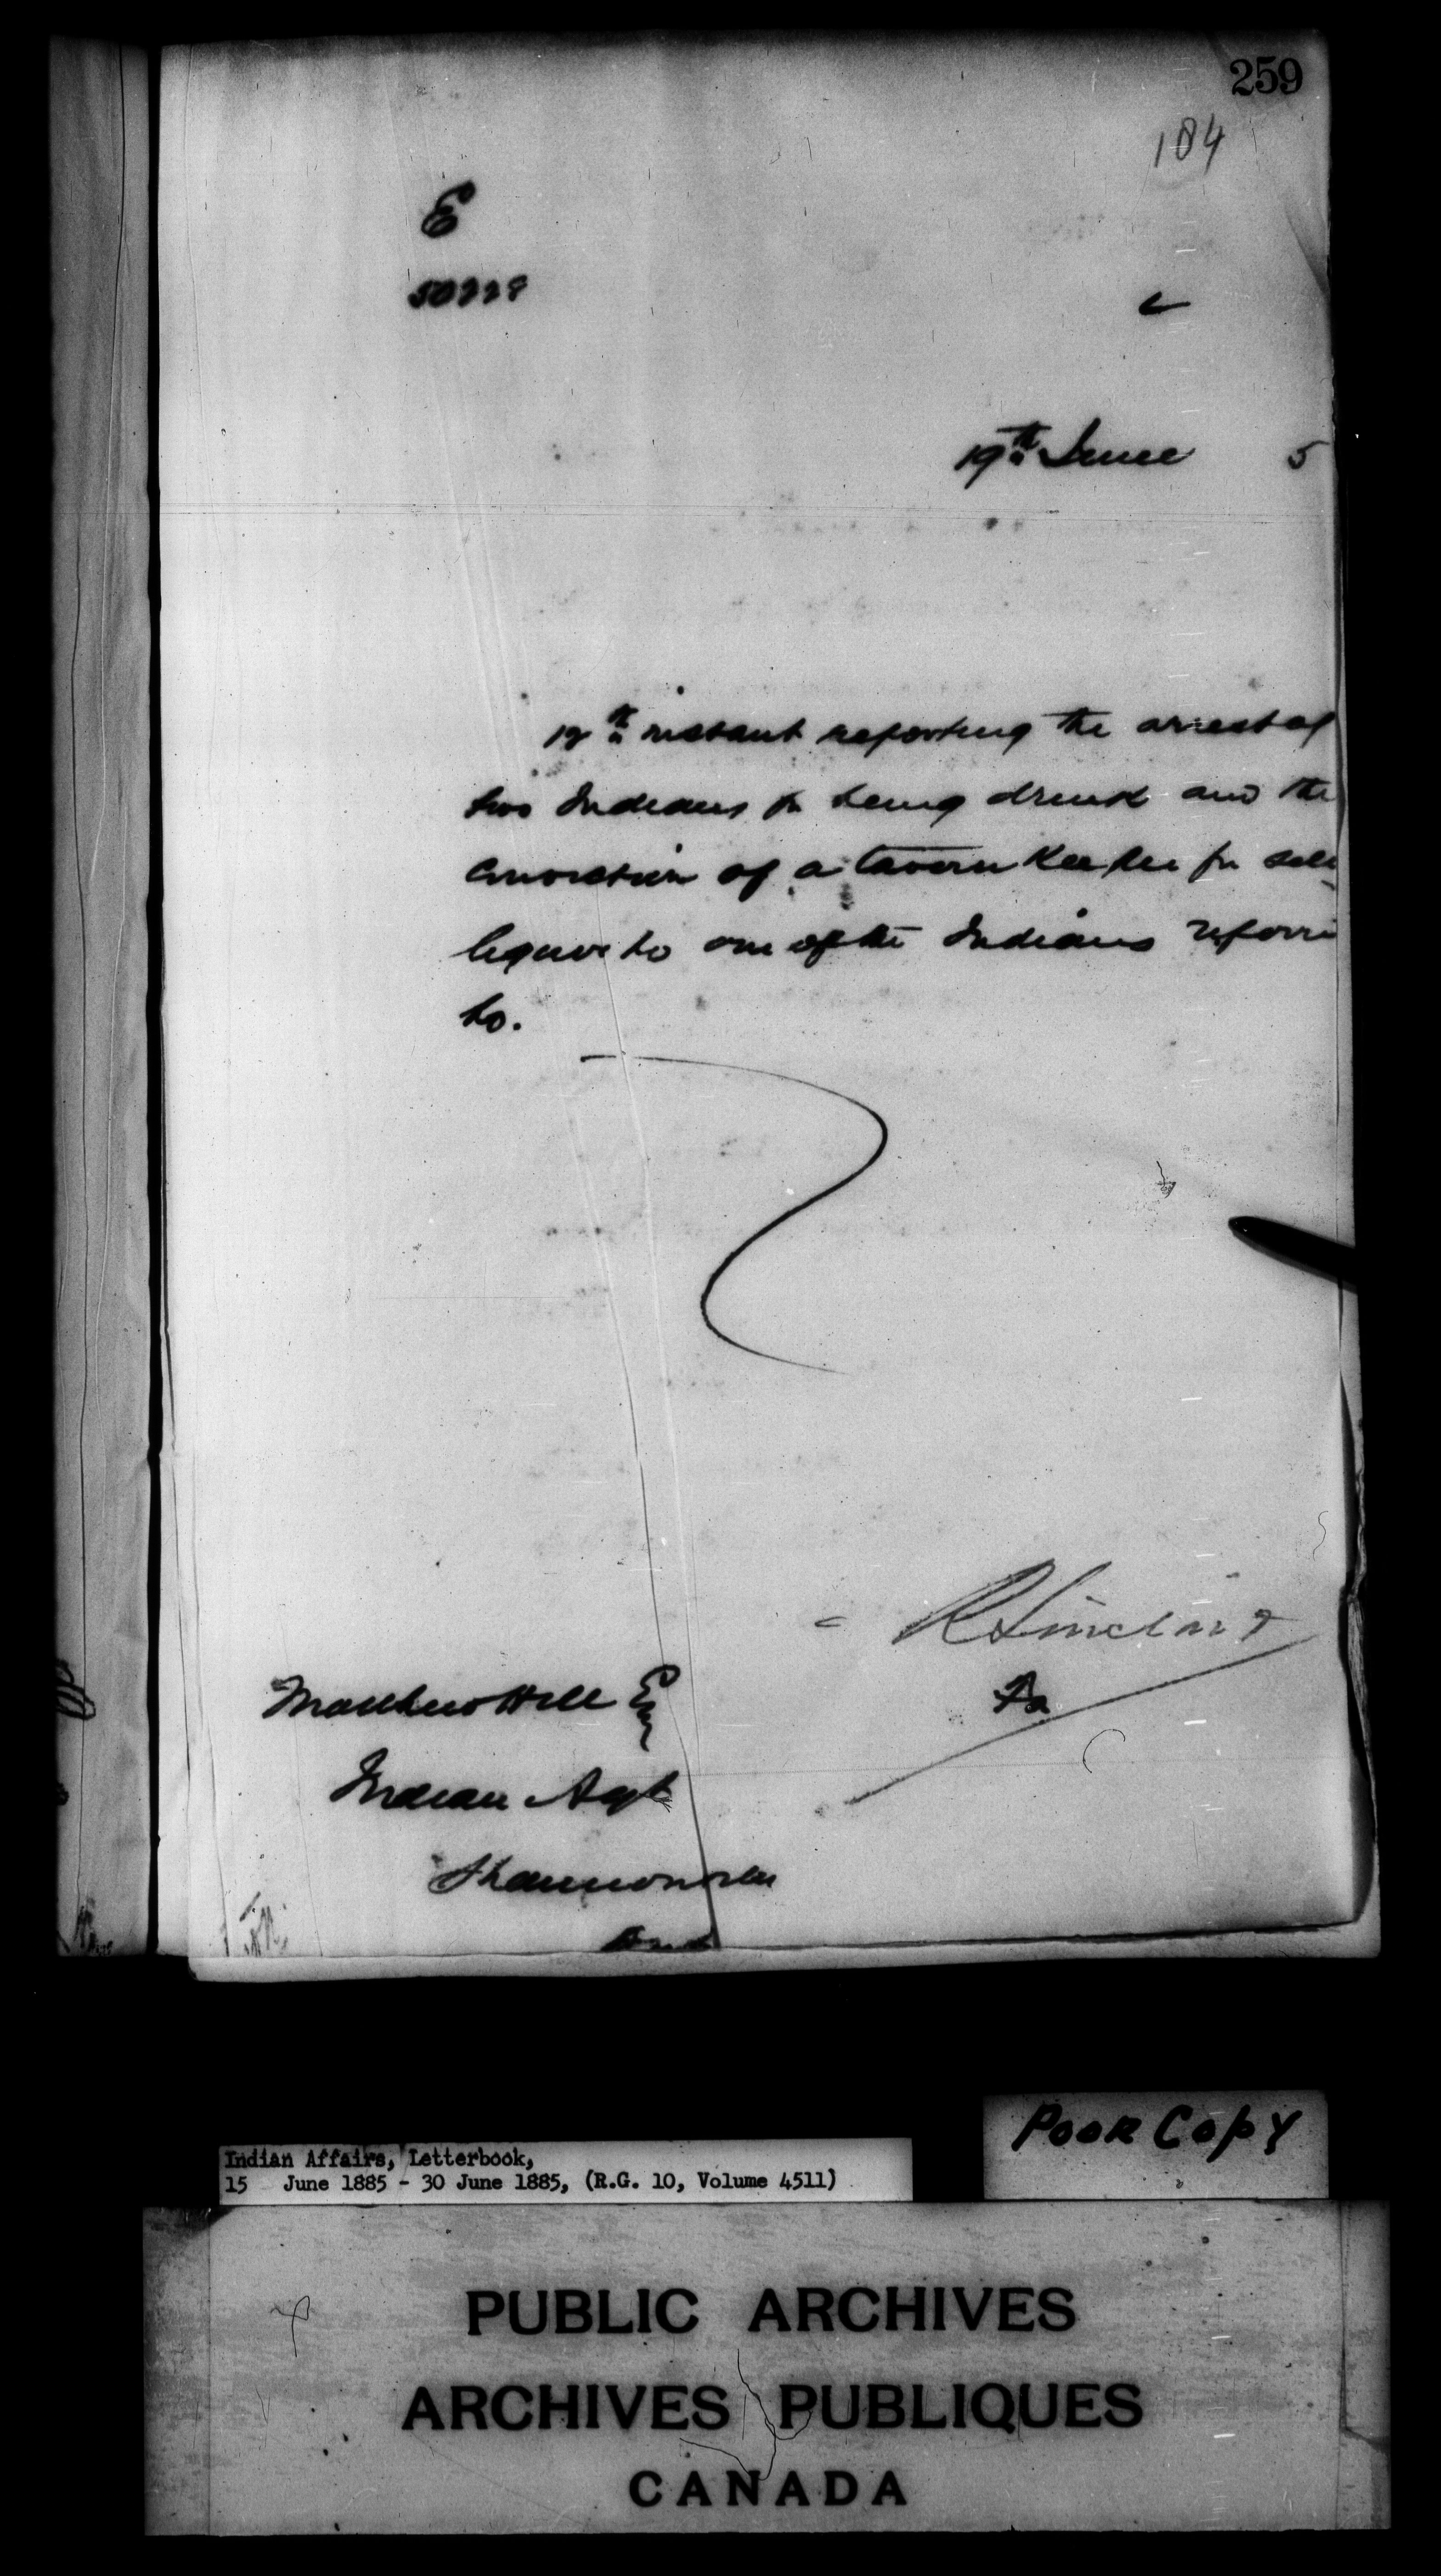 259
184
E
19th June 5
instant reporting the arrest of
two Indians for being drunk and the
conviction of a tavern keeper for sell
liquor to one of the Indians referre
to.
R Sinclair
Matthew Hill Esq
Indian Agt
Shannonville
Ont
Poor Copy
Indian Affairs, Letterbook,
15 June 1885 - 30 June 1885, (R.G. 10, Volume 4511)
PUBLIC ARCHIVES
ARCHIVES PUBLIQUES
CANADA